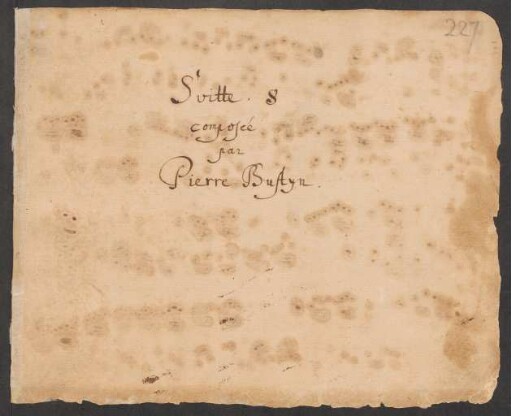 227
Svitte. 8
composée
par
Pierre Bustyn.